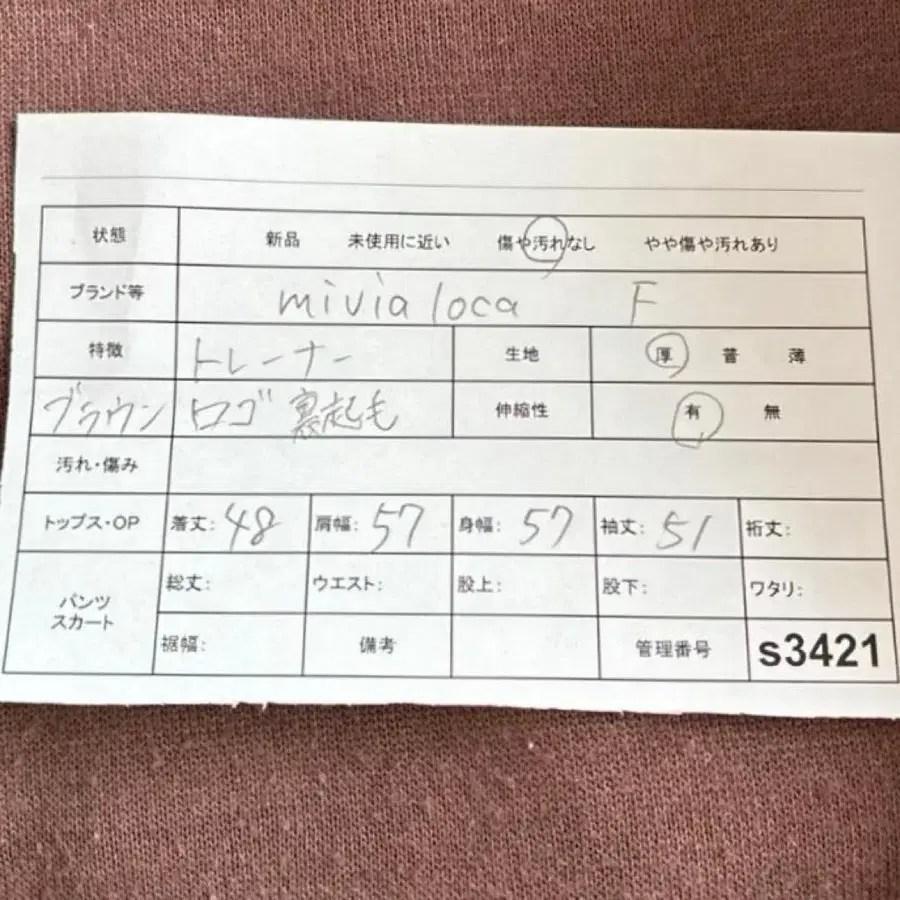 状態 新品 未使用に近い 傷や汚れなし やや傷や汚れあり
ブランド等 mivia loca F
特徴 トレーナー 生地 厚 普 薄
ブラウン ロゴ 裏起毛 伸縮性 有 無
汚れ・傷み
トップス・OP 着丈: 48 肩幅: 57 身幅: 57 袖丈: 51 裄丈:
パンツ スカート 総丈: ウエスト: 股上: 股下: ワタリ:
裾幅: 備考 管理番号 s3421